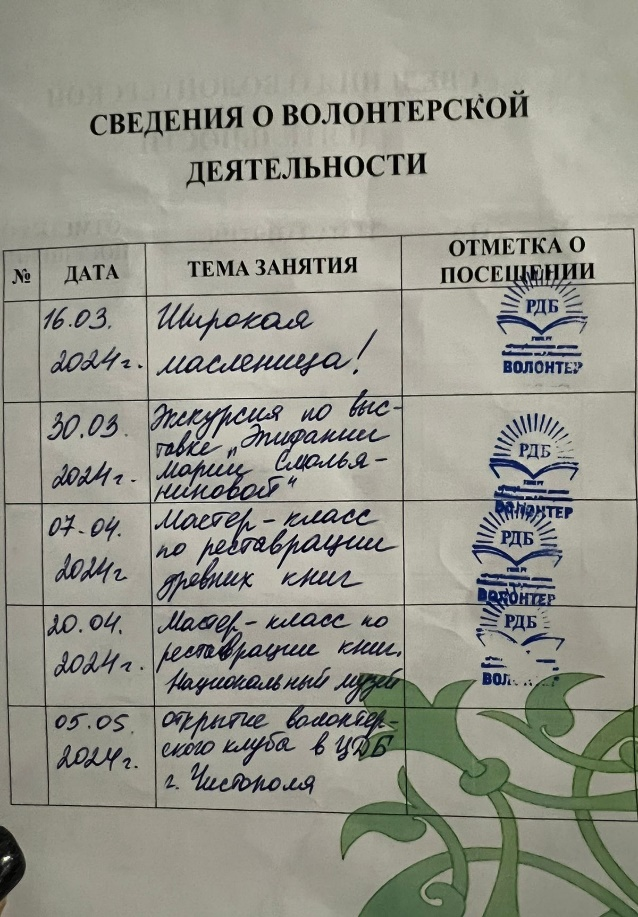 СВЕДЕНИЯ О ВОЛОНТЕРСКОЙ
ДЕЯТЕЛЬНОСТИ
№
ДАТА
ТЕМА ЗАНЯТИЯ
ОТМЕТКА О
ПОСЕЩЕНИИ
16.03.
2024г.
Широкая
масленица!
РДБ
ВОЛОНТЕР
30.03.
2024г.
Экскурсия по выс-
тавке „Эпифании
Марии Смолья-
ниновой"
РДБ
ВОЛОНТЕР
07.04.
2024г
Мастер-класс
по реставрации
древних книг
РДБ
ВОЛОНТЕР
20.04.
2024г.
Мастер-класс по
реставрации книг.
Национальный музей
РДБ
05.05.
2024г.
открытие волонтер-
ского клуба в ЦДБ
г. Чистополя